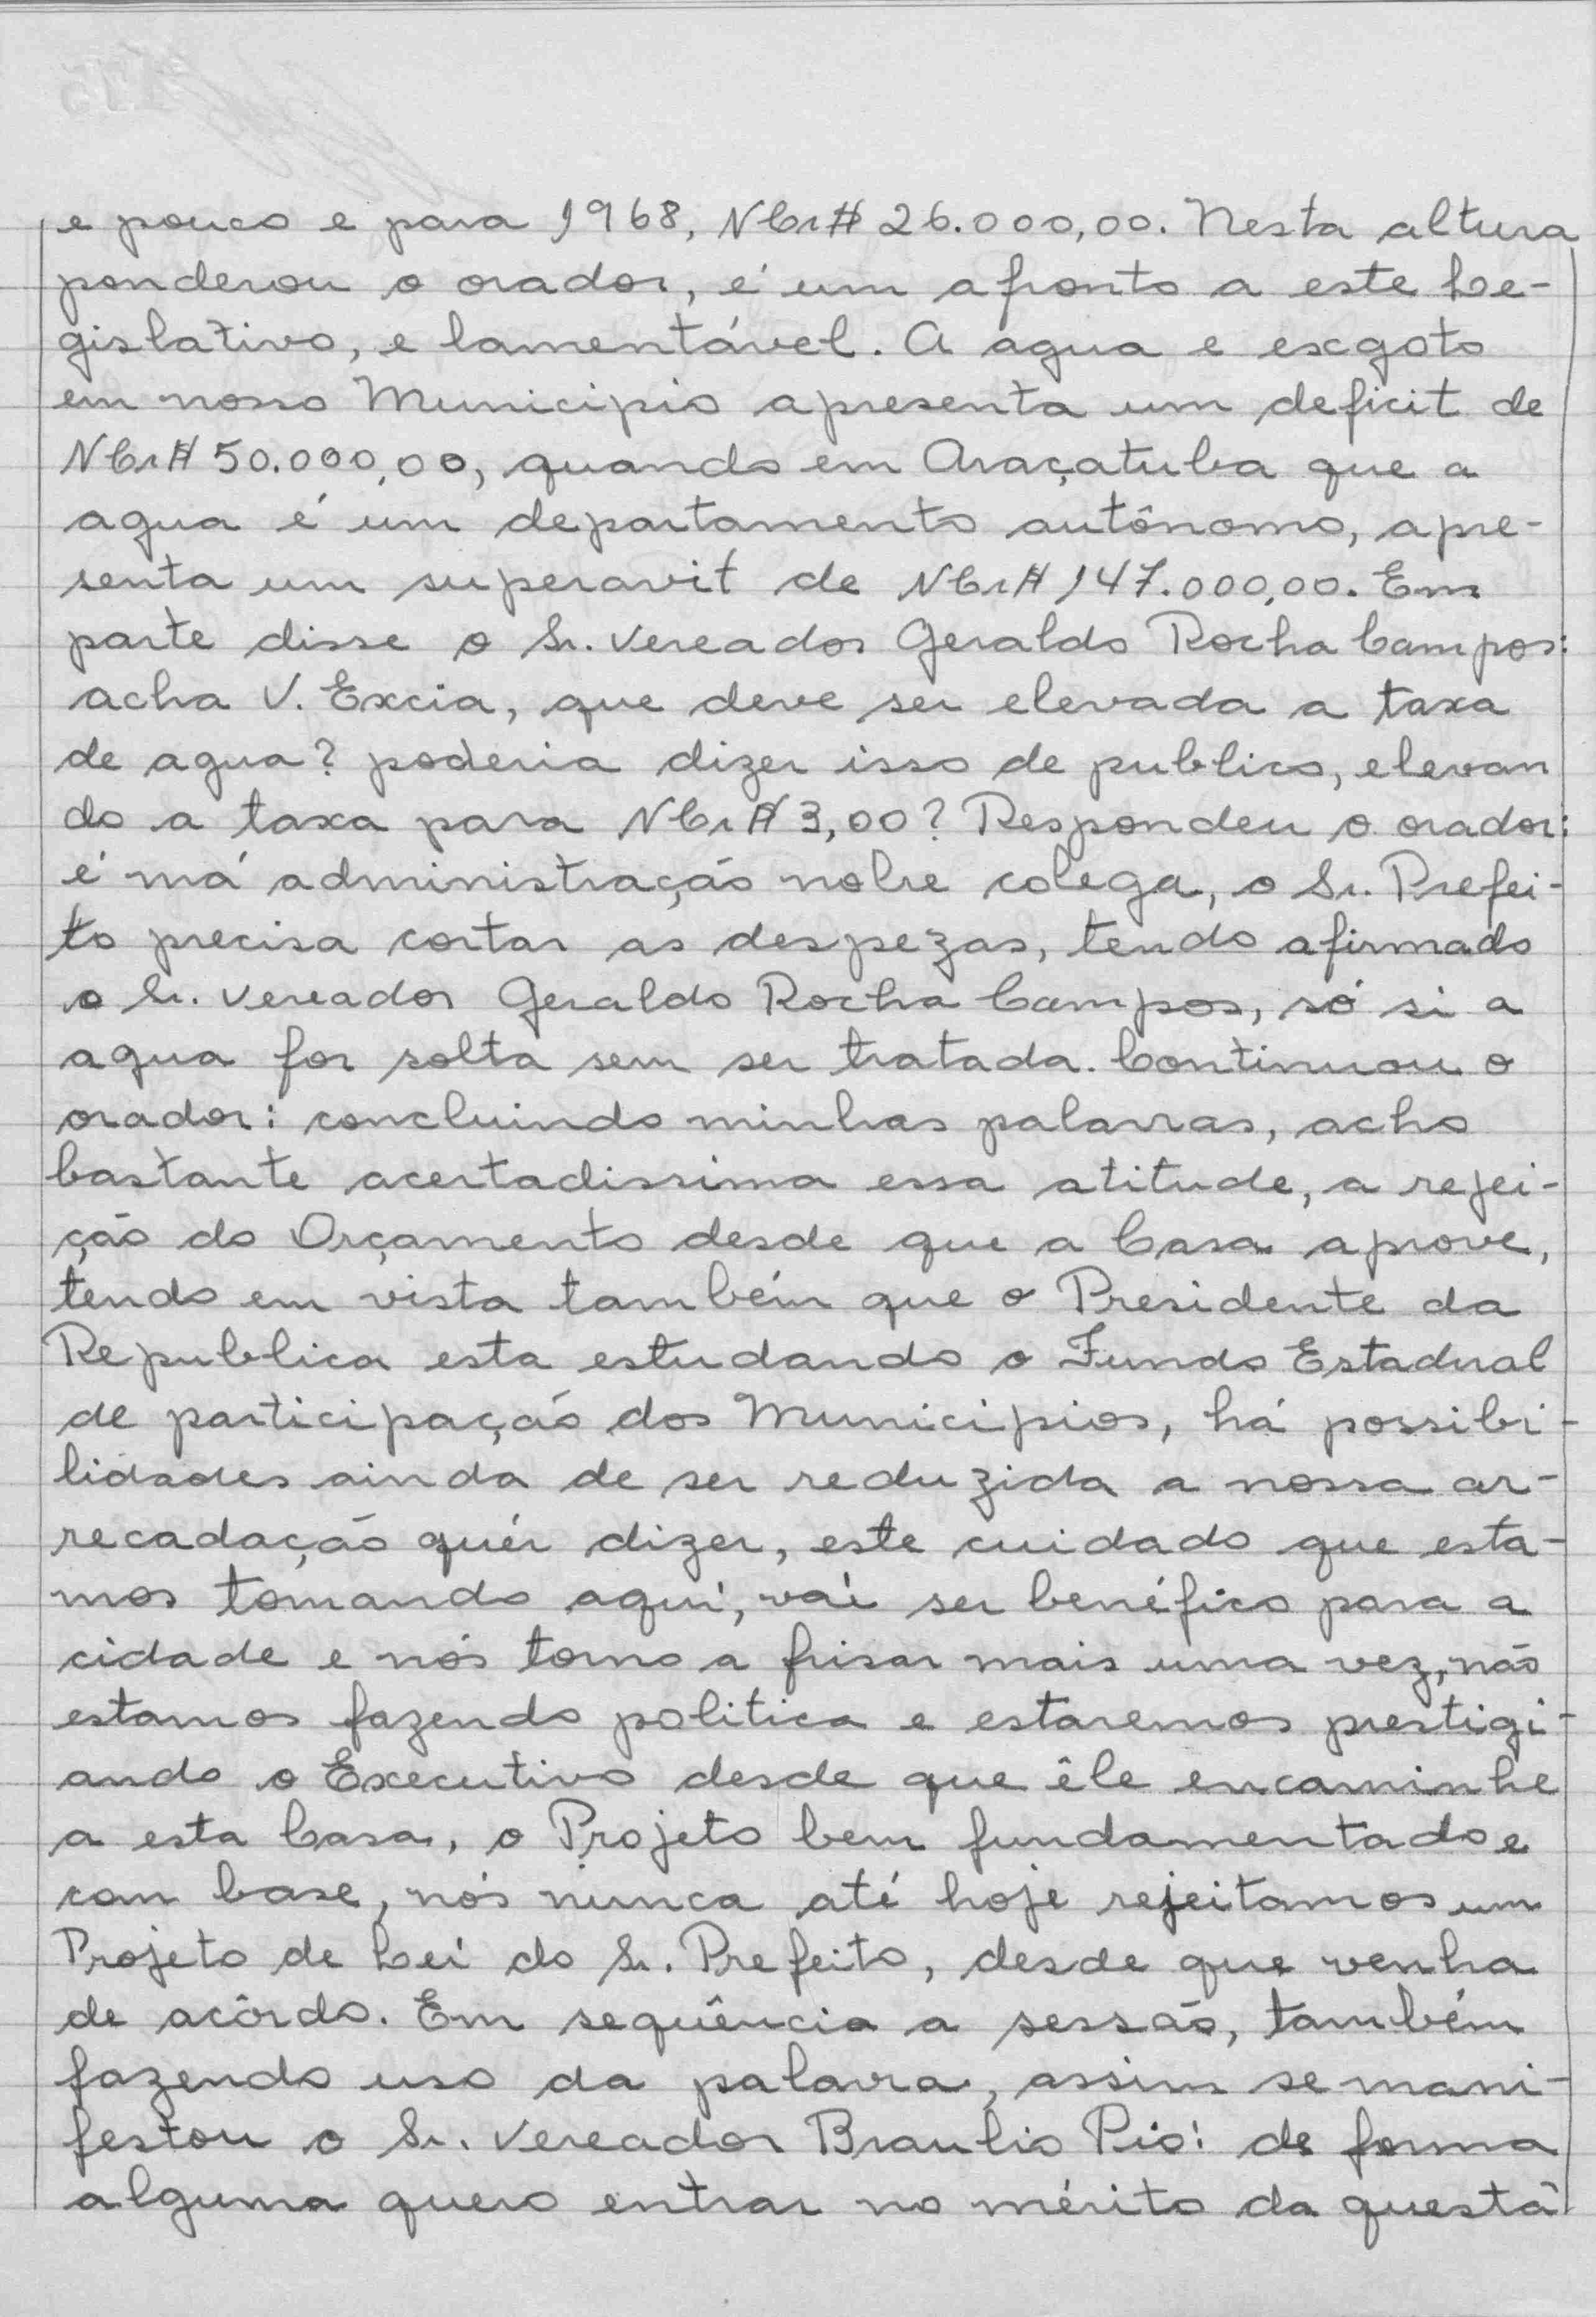 e pouco e para 1968, NCr$ 26.000,00. Nesta altura
ponderou o orador, é um afronto a este Le-
gislativo, e lamentável. A agua e exgoto
em nosso Municipio apresenta um deficit de
NCr$ 50.000,00, quando em Araçatuba que a
agua é um departamento autônomo, apre-
senta um superavit de NCr$ 147.000,00. Em
parte disse o Sr. Vereador Geraldo Rocha Campos:
acha V. Excia, que deve ser elevada a taxa
de agua? poderia dizer isso de publico, elevan
do a taxa para NCr$ 3,00? Respondeu o orador:
é má administração nobre colega, o Sr. Prefei-
to precisa cortar as despezas, tendo afirmado
o Sr. Vereador Geraldo Rocha Campos, só si a
agua for solta sem ser tratada. Continuou o
orador: concluindo minhas palavras, acho
bastante acertadissima essa atitude, a rejei-
ção do Orçamento desde que a Casa aprove,
tendo em vista também que o Presidente da
Republica esta estudando o Fundo Estadual
de participação dos Municipios, há possibi-
lidades ainda de ser reduzida a nossa ar-
recadação quér dizer, este cuidado que esta-
mos tomando aquí, vai ser benéfico para a
cidade e nós torno a frisar mais uma vez, não
estamos fazendo politica e estaremos prestigi-
ando o Executivo desde que êle encaminhe
a esta Casa, o Projeto bem fundamentado e
com base, nós nunca até hoje rejeitamos um
Projeto de Lei do Sr. Prefeito, desde que venha
de acôrdo. Em seqüência a sessão, também
fazendo uso da palavra, assim se mani-
festou o Sr. Vereador Braulio Pio: de forma
alguma quero entrar no mérito da questã